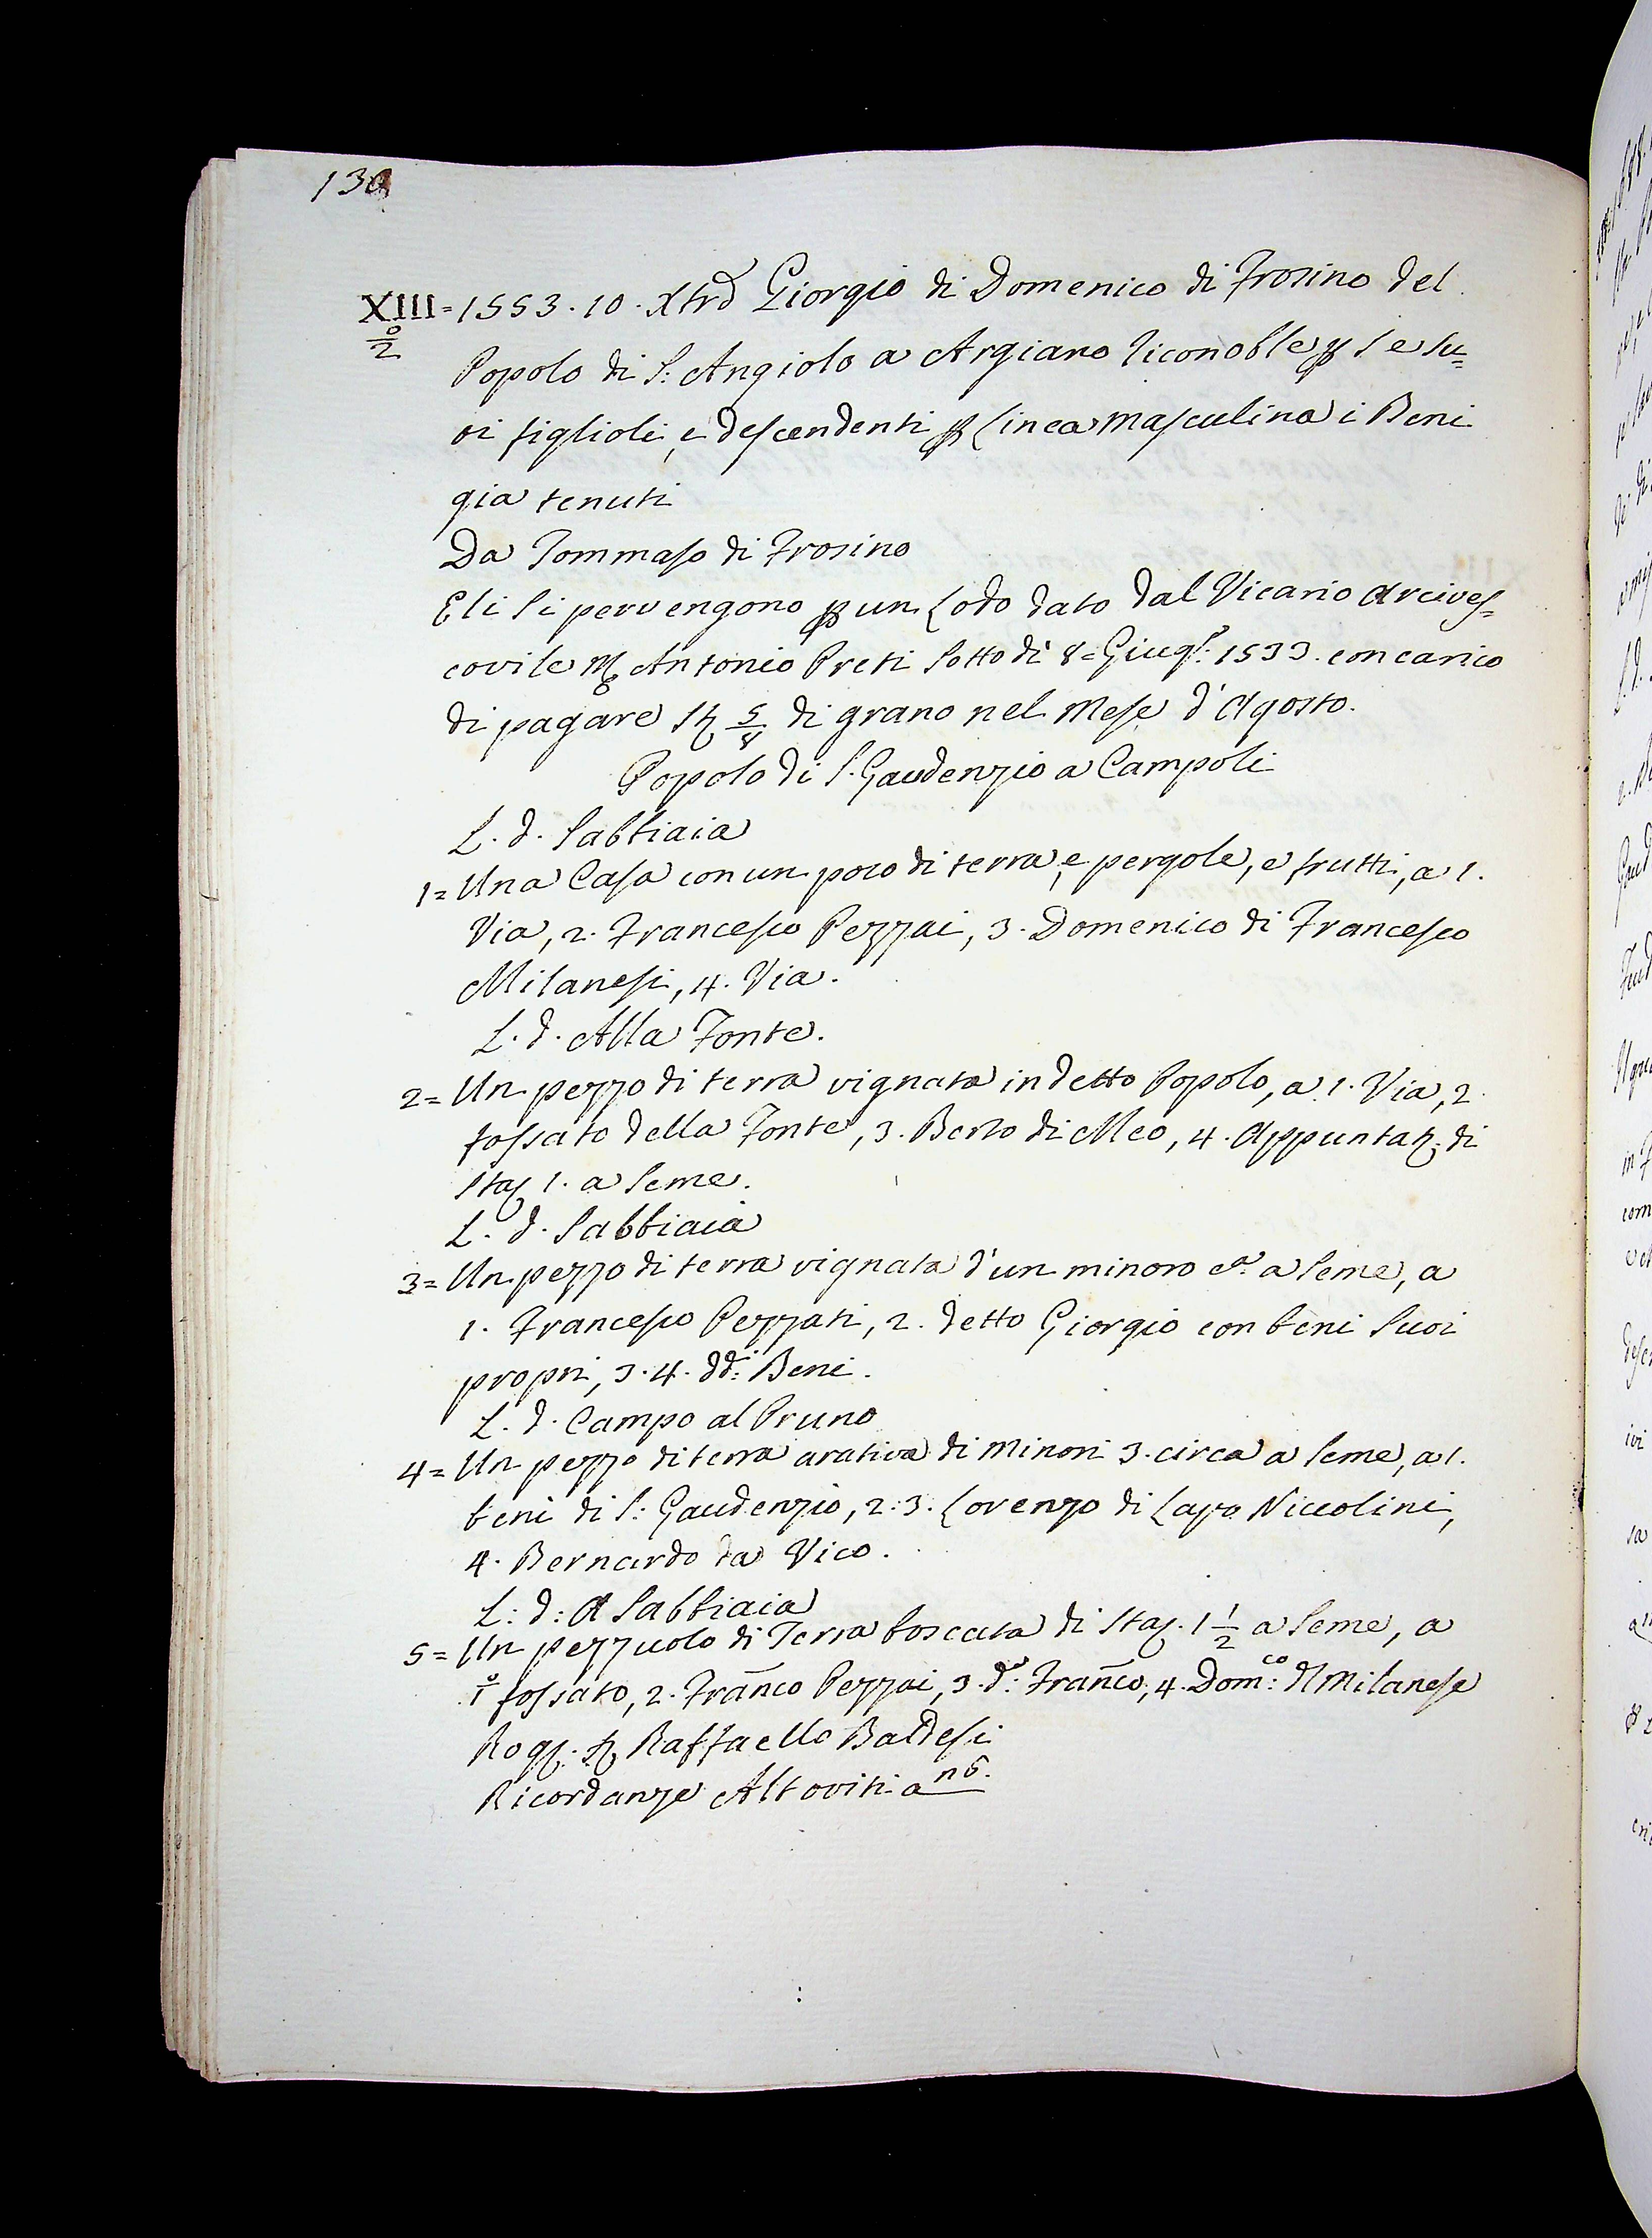 130
XIII = 1553. 10. Xbrẽ Giorgio di Domenico di Frosino del
o/2
Popolo di S: Angiolo a Argiano riconobbe p se su=
oi figlioli, e descendenti p linea masculina i Beni
gia tenuti
Da Tommaso di Frosino
E li si pervengono p un Lodo dato dal Vicario Arcives=
covile M Antonio Preti sotto dì 8= Giug.º 1533. con carico
di pagare St 5/8 di grano nel Mese d'Agosto.
Popolo di S. Gaudenzio a Campoli
L. d. Sabbiaia
1= Una Casa con un poco di terra, e pergole, e frutti, a 1.
Via, 2. Francesco Pezzai, 3. Domenico di Francesco
Milanesi, 4. Via.
L. d. Alla Fonte.
2= Un pezzo di terra vignata in detto Popolo, a 1. Via, 2.
fossato della Fonte, 3. Berto di Meo, 4. Appuntat. di
Staj 1. a seme.
L. d. Sabbiaia
3= Un pezzo di terra vignata d'un minoro cª. a seme, a
1. Francesco Pezzati, 2. detto Giorgio con beni suoi
propri, 3. 4. dd:i Beni.
L. d. Campo al Pruno
4= Un pezzo di terra arativa di Minori 3. circa a seme, a 1.
beni di S: Gaudenzio, 2. 3. Lorenzo di Lapo Niccolini,
4. Bernardo da Vico.
L: d: A Sabbiaia
5= Un pezzuolo di Terra boscata di Staj. 1 1/2 a seme, a
1º fossato, 2. Frañco Pezzai, 3. dº: Frañco, 4. Dom:co dl Milanese
Rog. S Raffaello Baldesi
Ricordanze Altoviti a n6.